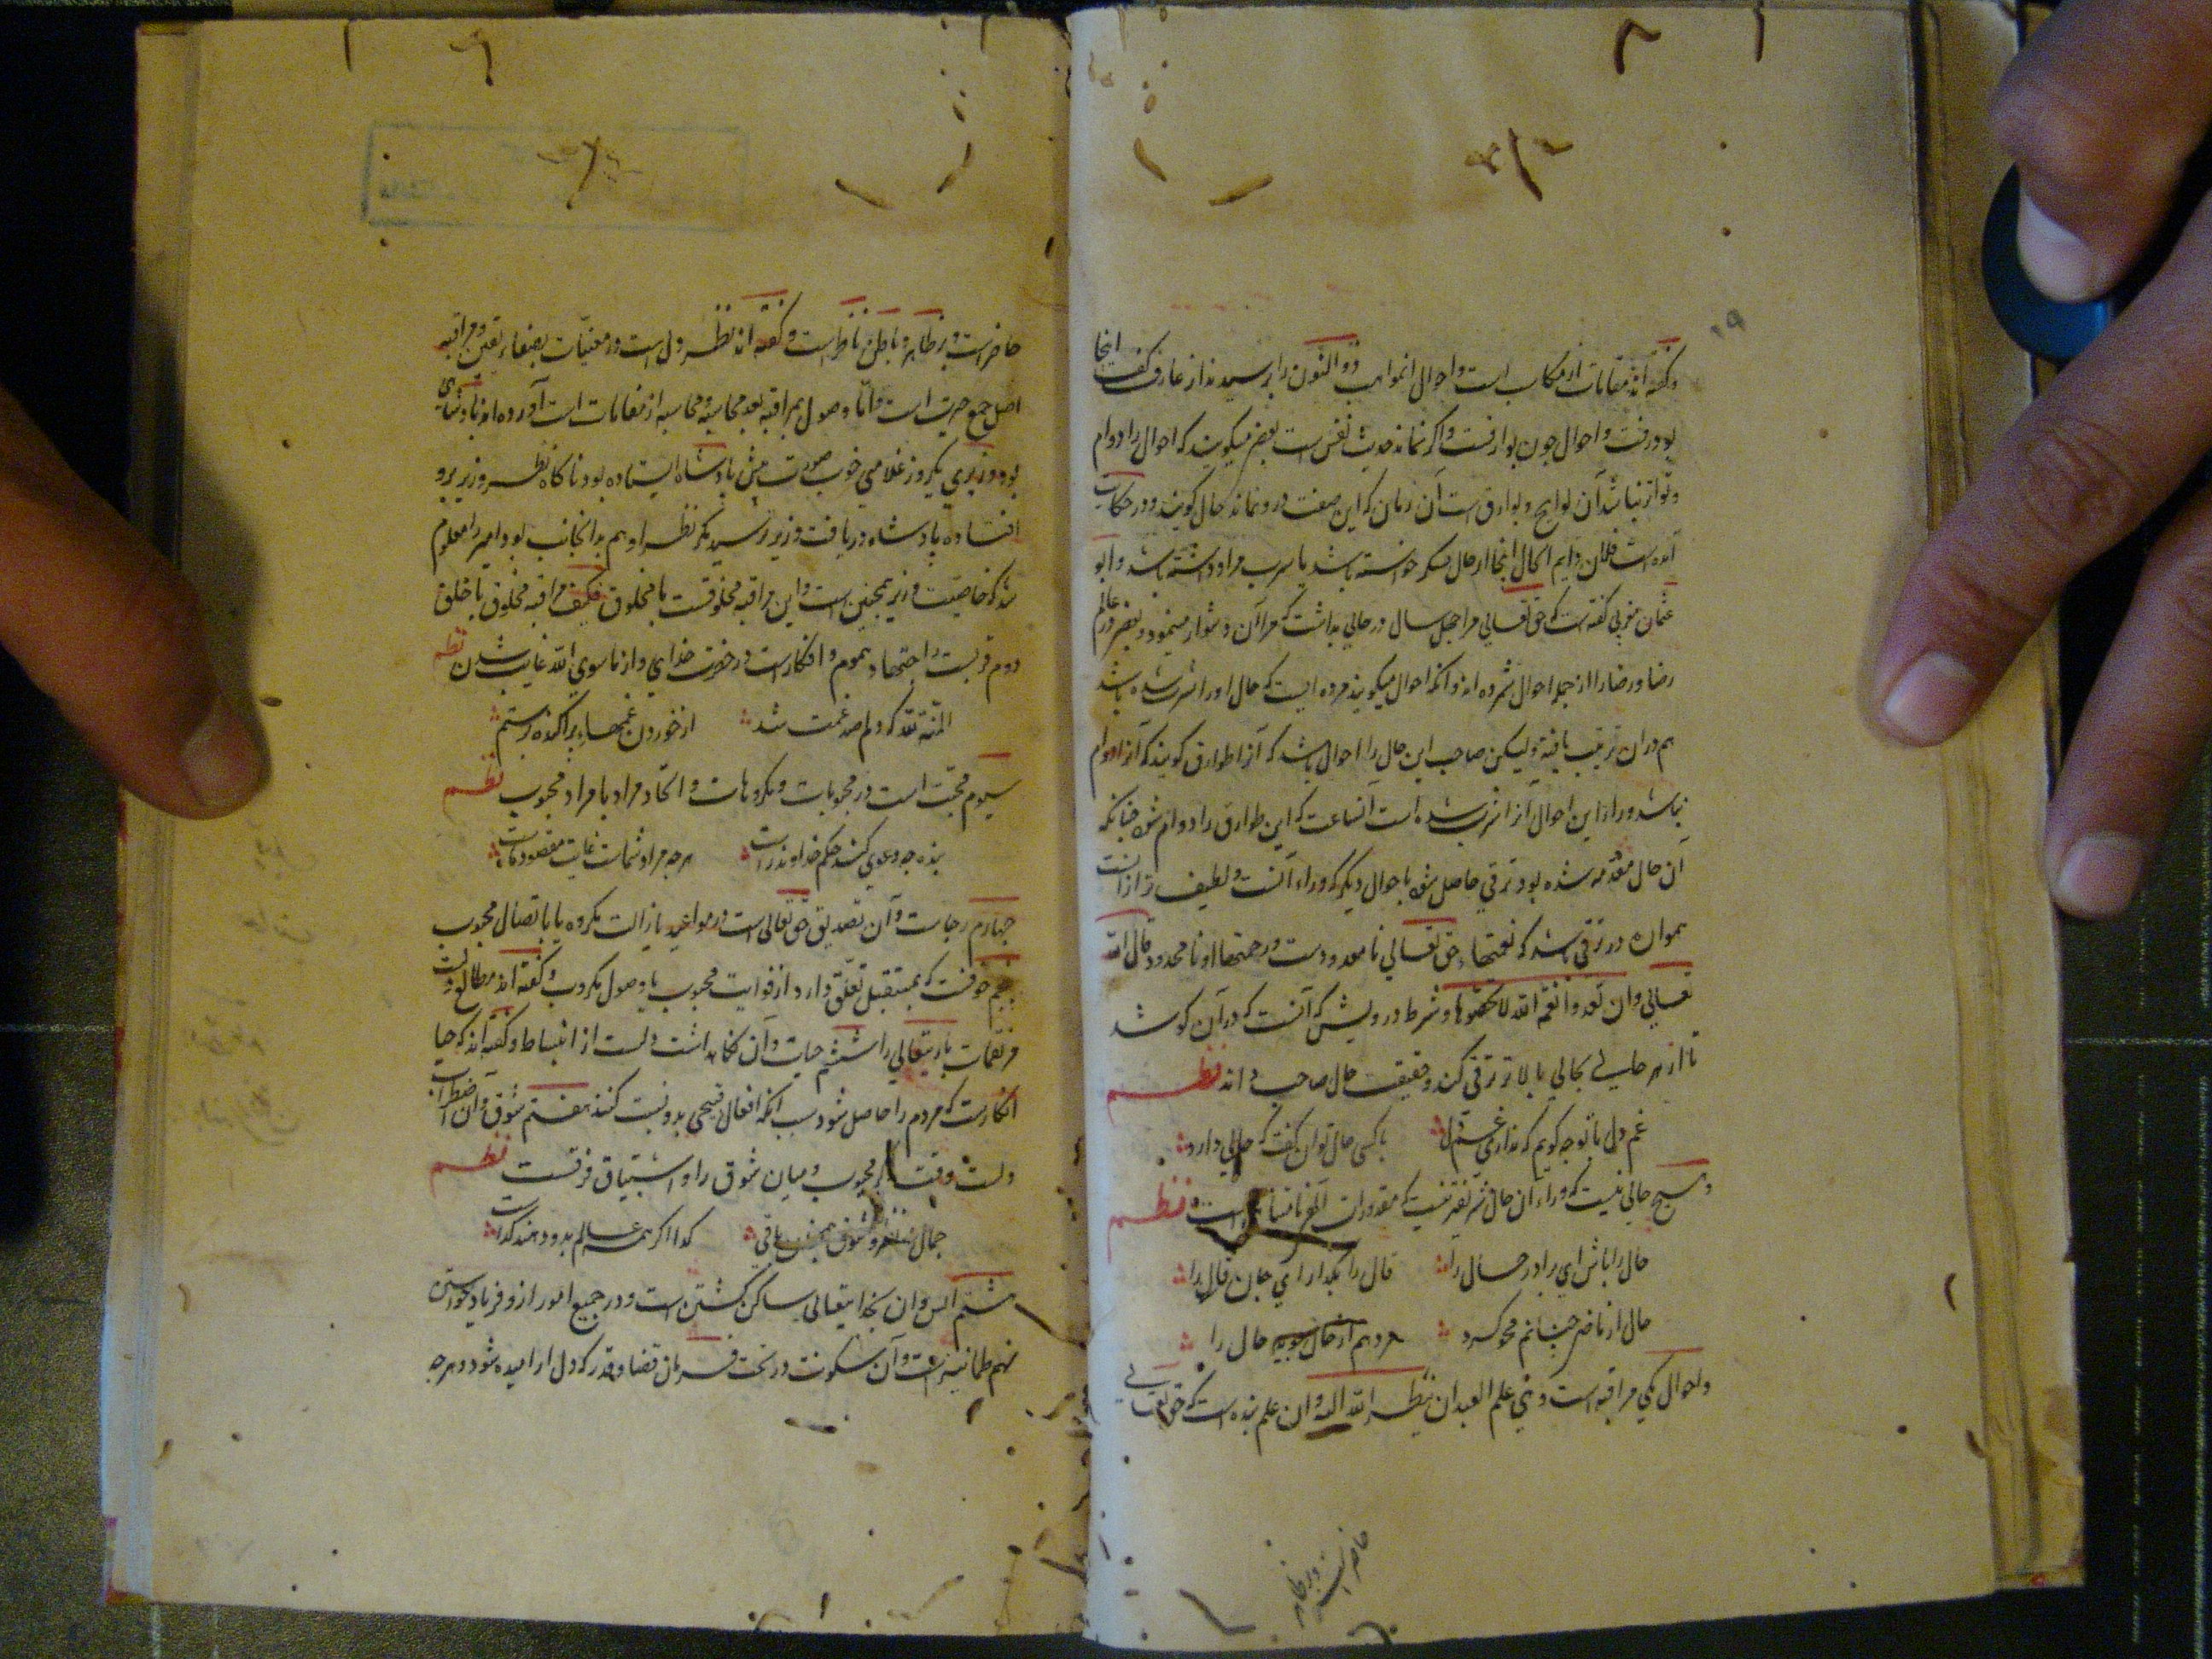 ۱۹
و گفته اند مقامات از مکاسب است و احوال از مواهب ذو النون را پرسیدند از عارف گفت اینجا
بود و رفت و احوال چون بوارقست و اگر نماند حدیث نفس است بعضی میگویند که احوال را دوام
و تواتر نباشد آن لوایح و بوارق است آن زمان که این صفت درو نماند حال گویند و در حکایت
آمده است فلان دایم الحال اینجا از حال سکر خواسته باشد یا سرب مراد داشته باشد و ابو
عثمان مغربی گفته است که حق تعالی مرا چهل سال در حالی بداشت که مرا آن دشوار مینمود و بعضی در عالم
رضا و رضا را از جمله احوال شمرده اند و آنکه احوال میگویند مرده ایست که حال او را شرب شده باشد
هم در آن ترتیب یافته ولیکن صاحب این حال را احوال باشد که آنرا طوارق گویند که آنرا دوام
نباشد و وراء این احوال آنرا شرب شده است آنساعت که این طوارق را دوام شود چنانکه
آن حال مقدمه شده بود ترقی حاصل شود باحوال دیگر که وراء آنست و لطیف تر از آنست
همواره در ترقی باشد که نعمتهاء حق تعالی نامعدودست و رحمتهاء او نامحدود قال الله
تعالی وان تعدوا نعم الله لا تحصوها و شرط درویش که آنست که در آن کوشد
تا از هر حالی بحالی بالاتر ترقی کند و حقیقت حال صاحب داند نظم
غم دل با تو چه گویم که نداری غم دل با کسی حال توان گفت که حالی دارد
و هیچ حالی نیست که وراء آن حال شریفتر نیست که مقدورات نظم
حال را باش ای برادر حال را قال را بگذار ای جان قال را
حال از ناضر چنانم محو کرد حال را
و احوال یکی مراقبه است و هی علم العبد ان ینظر الله الیه و ان علم بنده است که حق تعالی
حاضر است و بر ظاهر
حاضر است و بر ظاهر و باطن ناظر است و گفته اند نظر دل است در مغیبات بصفاء یقین و مراقبه
اصل جمع خیر است و اما وصول بمراقبه بعد محاسبه و محاسبه از مقامات است آورده اند پادشاهی
بود وزیری یکروز غلامی خوب صورت پیش پادشاه ایستاده بود ناگاه نظر وزیر برو
افتاده پادشاه دریافت وزیر ترسید مکر نظر او هم بدانجانب بود امیر را معلوم
شد که خاصیت وزیر همچنین است و این مراقبه مخلوقست با مخلوق فکیف مراقبه مخلوق با خالق
دوم قربت و اجتماد هموم و افکارست در حضرت خدای و از ما سوی الله غایب شدن نظم
المنة لله که دلم صد غمت شد از خوردن غمهاء پراکنده برستم
سیوم محبت است در محبوبات و مکروهات و اتحاد مراد با مراد محبوب نظم
بنده چه دعوی کند حکم خداوند راست هر چه مراد شماست غایت مقصود ماست
چهارم رجاست و آن تصدیق حق تعالی است در مواعید بازالت مکروه یا باتصال محبوب
پنجم خوفست که بمستقبل تعلق دارد از فوایت محبوب یا وصول مکروب و گفته اند مطالع دلست
مر نقمات باریتعالی را ششم حیاست و آن نگاهداشت دلست از انبساط و گفته اند که حیا
انکارست که مردم را حاصل شود بسبب آنکه افعال قبیحی بدو نسبت کنند هفتم شوق و آن اضطراب
دلست وقت ذکر محبوب و میان شوق را و اشتیاق فرقست نظم
جمال و شوق همچنان باقی گدا اگر همه عالم بدو دهند گداست
هشتم انس و آن بخدایتعالی ساکن گشتن است و در جمیع امور ازو فریاد خواستن
نهم طمانینه است و آن سکونت در تحت فرمان قضا و قدر که دل ارامیده شود و هر چه